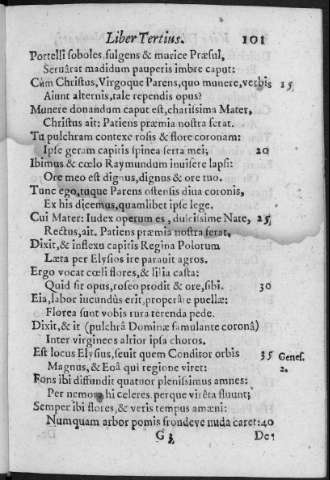 Liber Tertius. 101
Portelli soboles, fulgens & murice Præsul,
Servârat madidum pauperis imbre caput:
Cùm Christus, Virgoque Parens, quo munere, verbis 15
Aiunt alternis, tale rependis opus?
Munere donandum caput est, charissima Mater,
Christus ait: Patiens præmia nostra ferat.
Tu pulchram contexe rosis & flore coronam:
Ipse geram capitis spinea serta mei; 20
Ibimus & cœlo Raymundum invisere lapsi:
Ore meo est dignus, dignus & ore tuo.
Tunc ego, tuque Parens ostensis diva coronis,
Ex his dicemus, quamlibet ipse lege.
Cui Mater: Iudex operum es, dulcissime Nate, 25
Rectus, ait. Patiens præmia nostra ferat,
Dixit, & inflexu capitis Regina Polorum
Læta per Elysios ire parauit agros.
Ergo vocat cœli flores, & lilia casta:
Quid sit opus, roseo prodit & ore, sibi. 30
Eia, labor iucundùs erit, properâte puellæ:
Florea sunt vobis rura terenda pede.
Dixit, & it (pulchrâ Dominæ famulante coronâ)
Inter virgineos altior ipsa choros.
Est locus Elysius, sevit quem Conditor orbis 35 Genes.
Magnus, & Eoâ qui regione viret: 2.
Fons ibi diffundit quatuor plenissimus amnes:
Per nemora hi celeres, perque virêta fluunt;
Semper ibi flores, & veris tempus amœni:
Numquam arbor pomis frondeve nuda caret: 40
G 3 De